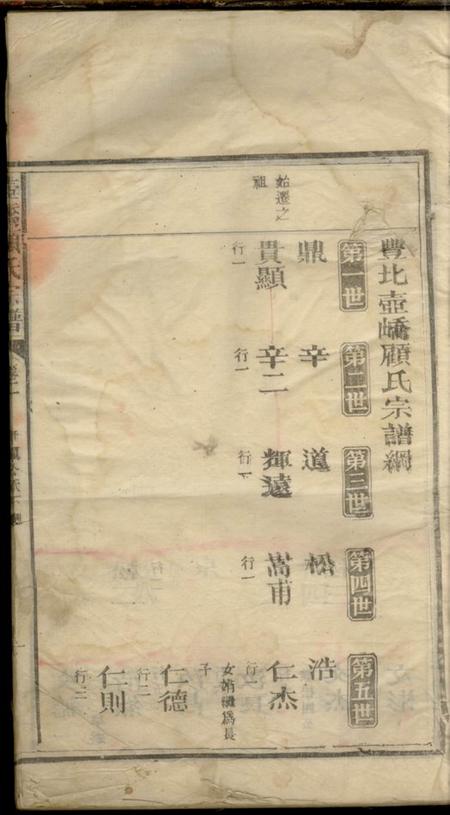 豐北壺嶠顧氏宗譜綱
第一世
第二世
第三世
第四世
第五世
鼎
辛
道
松
浩
始遷之
祖
貴顯
行一
辛二
行一
輝遠
行一
嵩甫
行一
仁杰
行一
子
仁德
行二
仁則
行三
顧氏宗譜